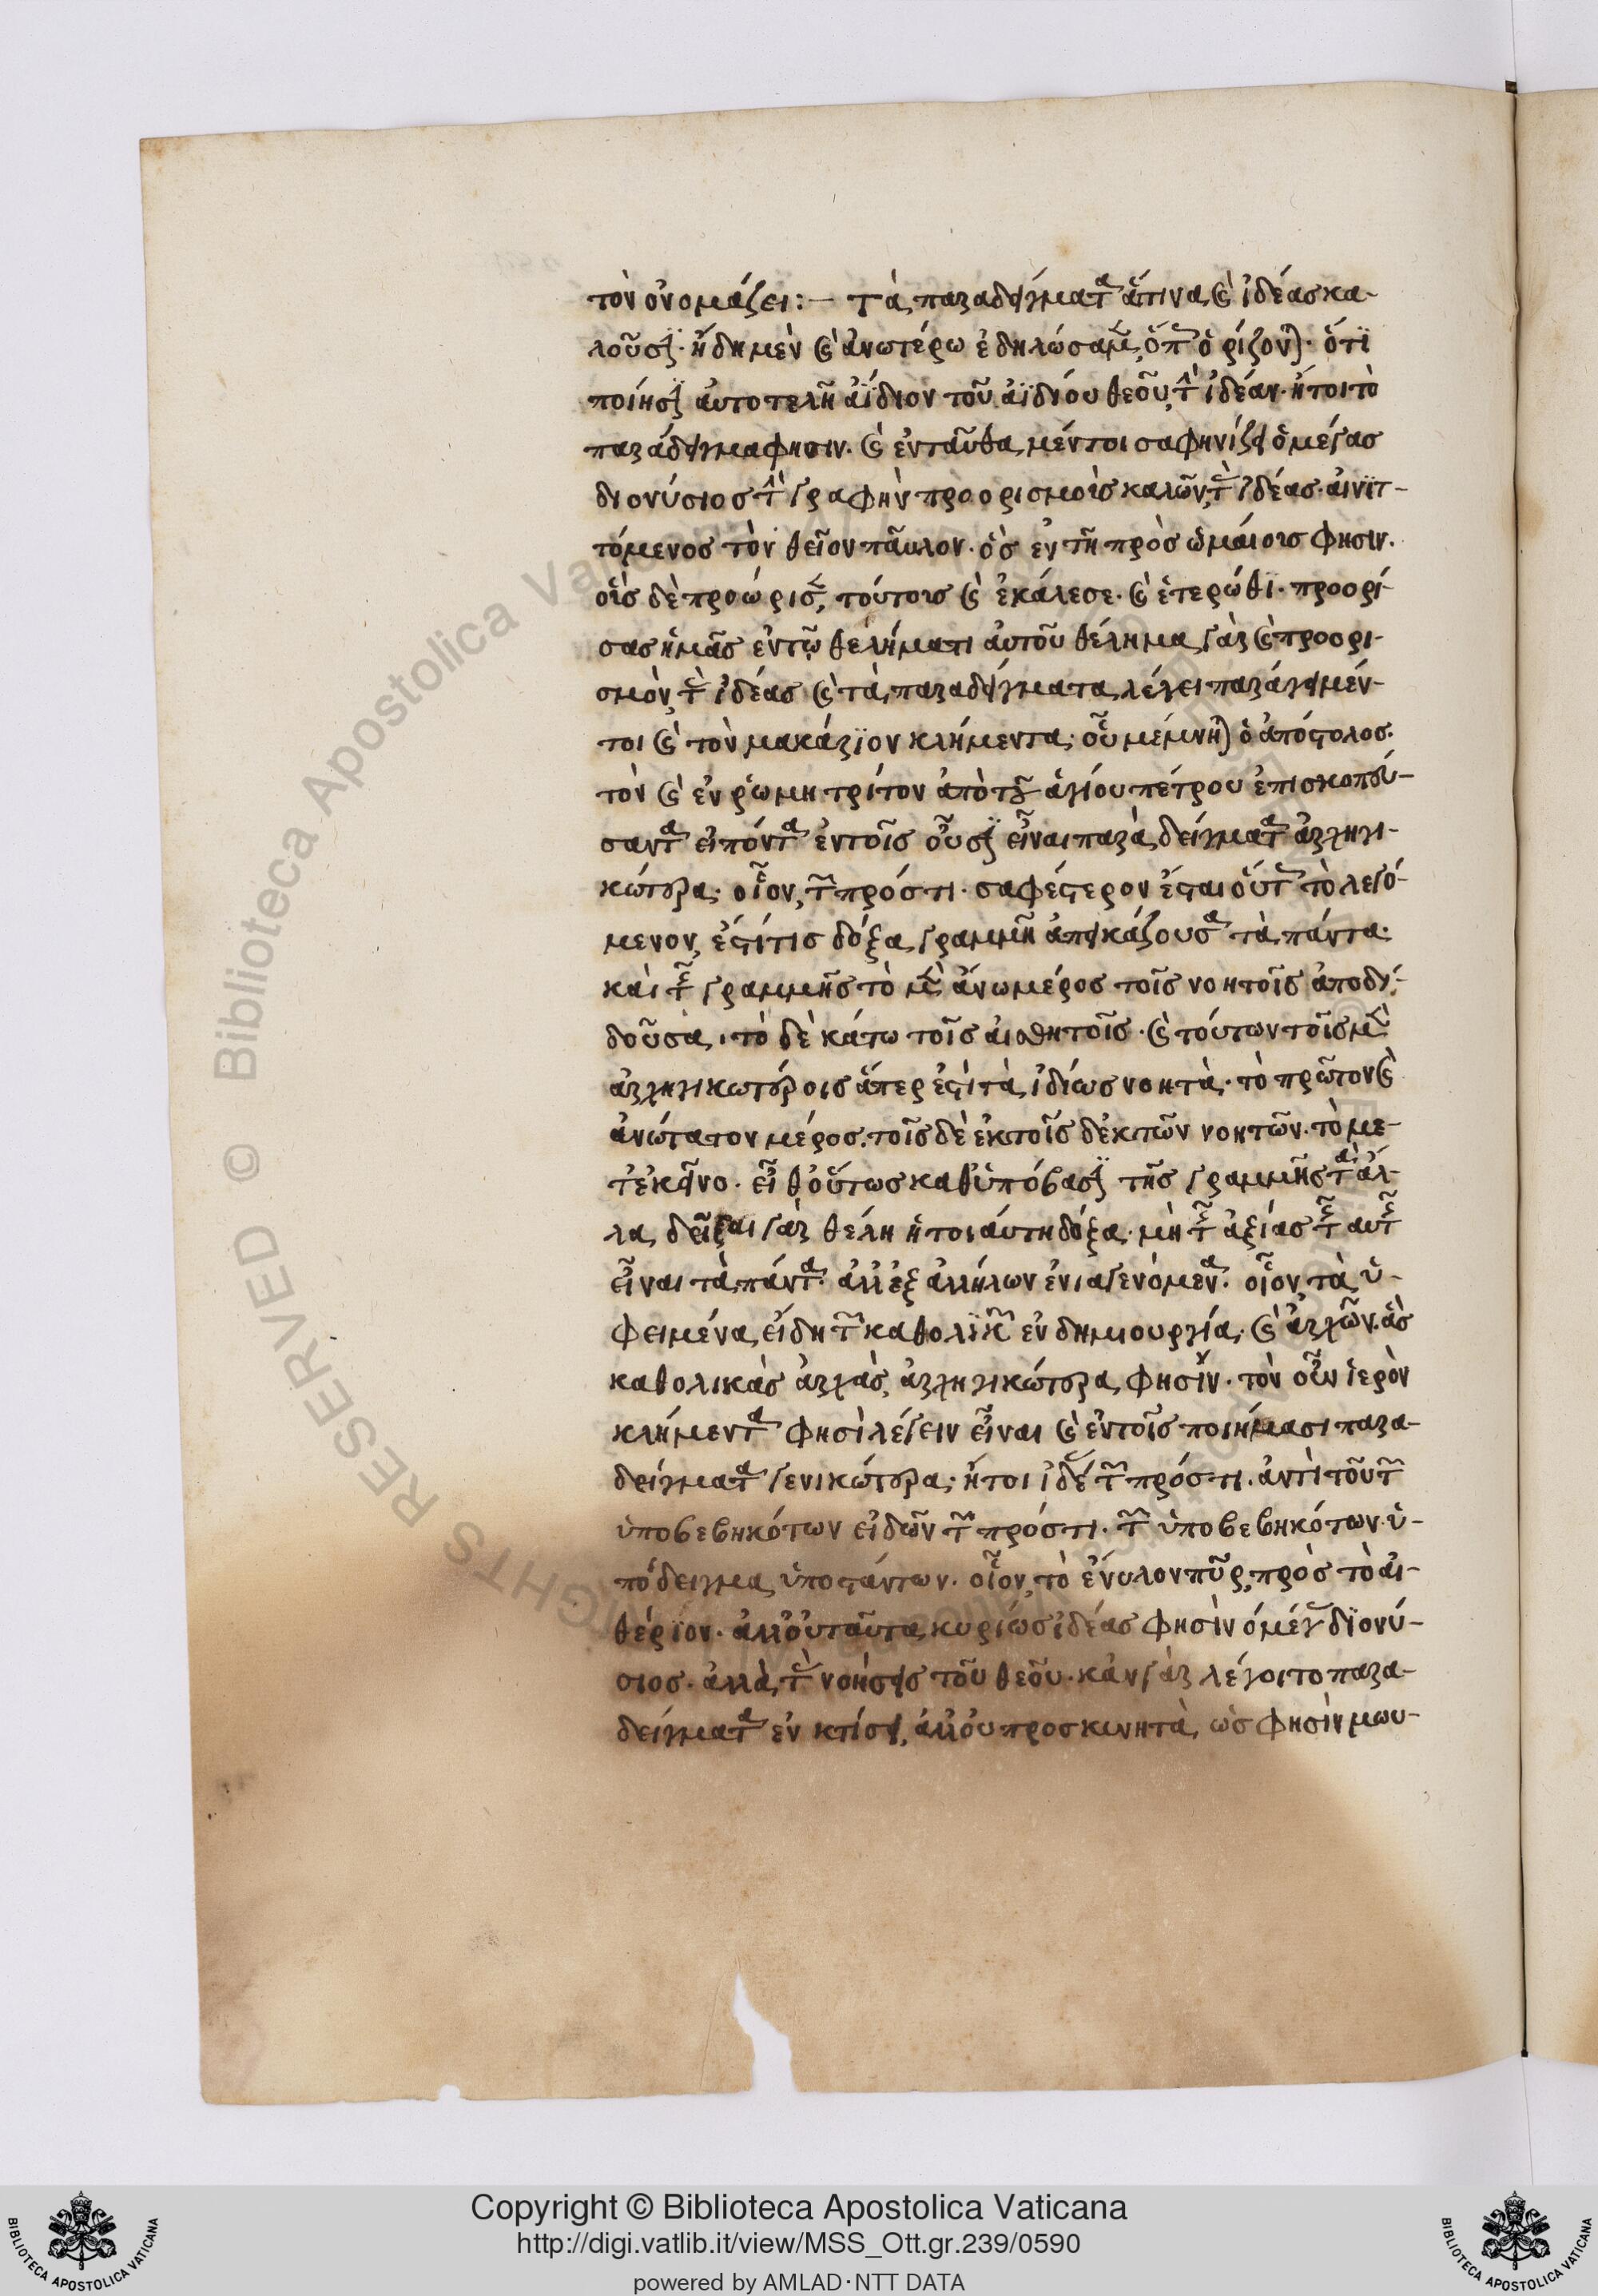 τὸν ὀνομάζει:— Τὰ παραδείγματα ἅτινα καὶ ἰδέας κα-
λοῦσϊ· ἤδη μὲν καὶ ἀνωτέρω ἐδηλώσαμεν, ὅπως ὁρίζονται· ὅτϊ
ποίησϊν αὐτοτελῆ ἀΐδιον τοῦ ἀϊδίου θεοῦ, τὴν ἰδέαν· ἤτοι τὸ
παράδειγμα φησιν· καὶ ἐνταῦθα μέντοι σαφηνίζει ὁ μέγας
διονύσιος τὴν γραφὴν προορισμοὺς καλῶν, τὰς ἰδέας· αἰνϊτ-
τόμενος τὸν θεῖον παῦλον· ὃς ἐν τῆ πρὸς ῥωμαίοις φησιν·
οἷς δὲ προώρισε, τούτοις καὶ ἐκάλεσε· καὶ ἑτερώθϊ· προορί-
σας ἡμᾶς ἐν τῷ θελήματι αὐτοῦ θέλημα γὰρ καὶ προορι-
σμὸν, τὰς ἰδέας καὶ τὰ παραδείγματα λέγει παράγει μέν-
τοι καὶ τὸν μακάρϊον κλήμεντα· οὗ μέμνηται ὁ ἀπόστολος·
τὸν καὶ ἐν ῥώμη τρίτον ἀπὸ τοῦ ἁγίου πέτρου ἐπισκοπού-
σαντα εἰπόντα ἐν τοῖς οὖσϊν εἶναι παραδείγματα ἀρχηγι-
κώτερα· οἷον, τῶν πρός τι· σαφέστερον ἔσται οὕτως τὸ λεγό-
μενον, ἐστί τις δόξα γραμμῆ ἀπεικάζουσα τὰ πάντα·
καὶ τῆς γραμμῆς τὸ μὲν ἄνω μέρος τοῖς νοητοῖς ἀποδι-
δοῦσα, τὸ δὲ κάτω τοῖς αἰσθητοῖς· καὶ τούτων τοῖς μὲν
ἀρχηγικωτέροις ἅπερ ἐστὶ τὰ ἰδίως νοητὰ· τὸ πρῶτον καὶ
ἀνώτατον μέρος· τοῖς δὲ ἐκ τοῖς δ' ἐκ τῶν νοητῶν· τὸ με-
τ' ἐκεῖνο· εἶθ' οὕτως καθ' ὑπόβασϊν τῆς γραμμῆς τὰ ἄλ-
λα δεῖξαι γὰρ θέλη ἡ τοιαύτη δόξα· μὴ τῆς ἀξίας τῆς αὐτῆς
εἶναι τὰ πάντα· ἀλλ' ἐξ ἀλλήλων ἔνια γενόμενα· οἷον τὰ ὑ-
φειμένα εἴδη τῶν καθολϊκῶν ἐν δημιουργία· καὶ ἀρχῶν· ἃς
καθολικὰς ἀρχὰς, ἀρχηγικώτερα φησὶν· τὸν οὖν ἱερὸν
κλήμεντα φησὶ λέγειν εἶναι καὶ ἐν τοῖς ποιήμασι παρα-
δείγματα γενικώτερα· ἤτοι ἰδέας τῶν πρός τι· ἀντὶ τοῦ τῶν
ὑποβεβηκότων εἰδῶν τῶν πρός τι· τῶν ὑποβεβηκότων· ὑ-
πόδειγμα ὑποστάντων· οἷον, τὸ ἔνυλον πῦρ, πρὸς τὸ αἰ-
θέρϊον· ἀλλ' οὐ ταῦτα κυρίως ἰδέας φησὶν ὁ μέγας δϊονύ-
σιος· ἀλλὰ τὰς νοήσεις τοῦ θεοῦ· κἂν γὰρ λέγοιτο παρα-
δείγματα ἐν κτίσει, ἀλλ' οὐ προσκυνητὰ ὡς φησὶν μωυ-
Copyright © Biblioteca Apostolica Vaticana
http://digi.vatlib.it/view/MSS_Ott.gr.239/0590
powered by AMLAD·NTT DATA
BIBLIOTECA APOSTOLICA VATICANA
BIBLIOTECA APOSTOLICA VATICANA